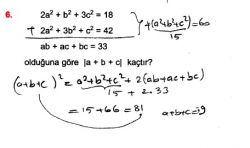 6. 2a² + b² + 3c² = 18
+ 2a² + 3b² + c² = 42
+4(a²+b²+c²)=60
15
ab + ac + bc = 33
olduğuna göre |a + b + c| kaçtır?
(a+b+c)² = a²+b²+c² + 2(ab+ac+bc)
15 + 2.33
=15+66=81
a+b+c=9